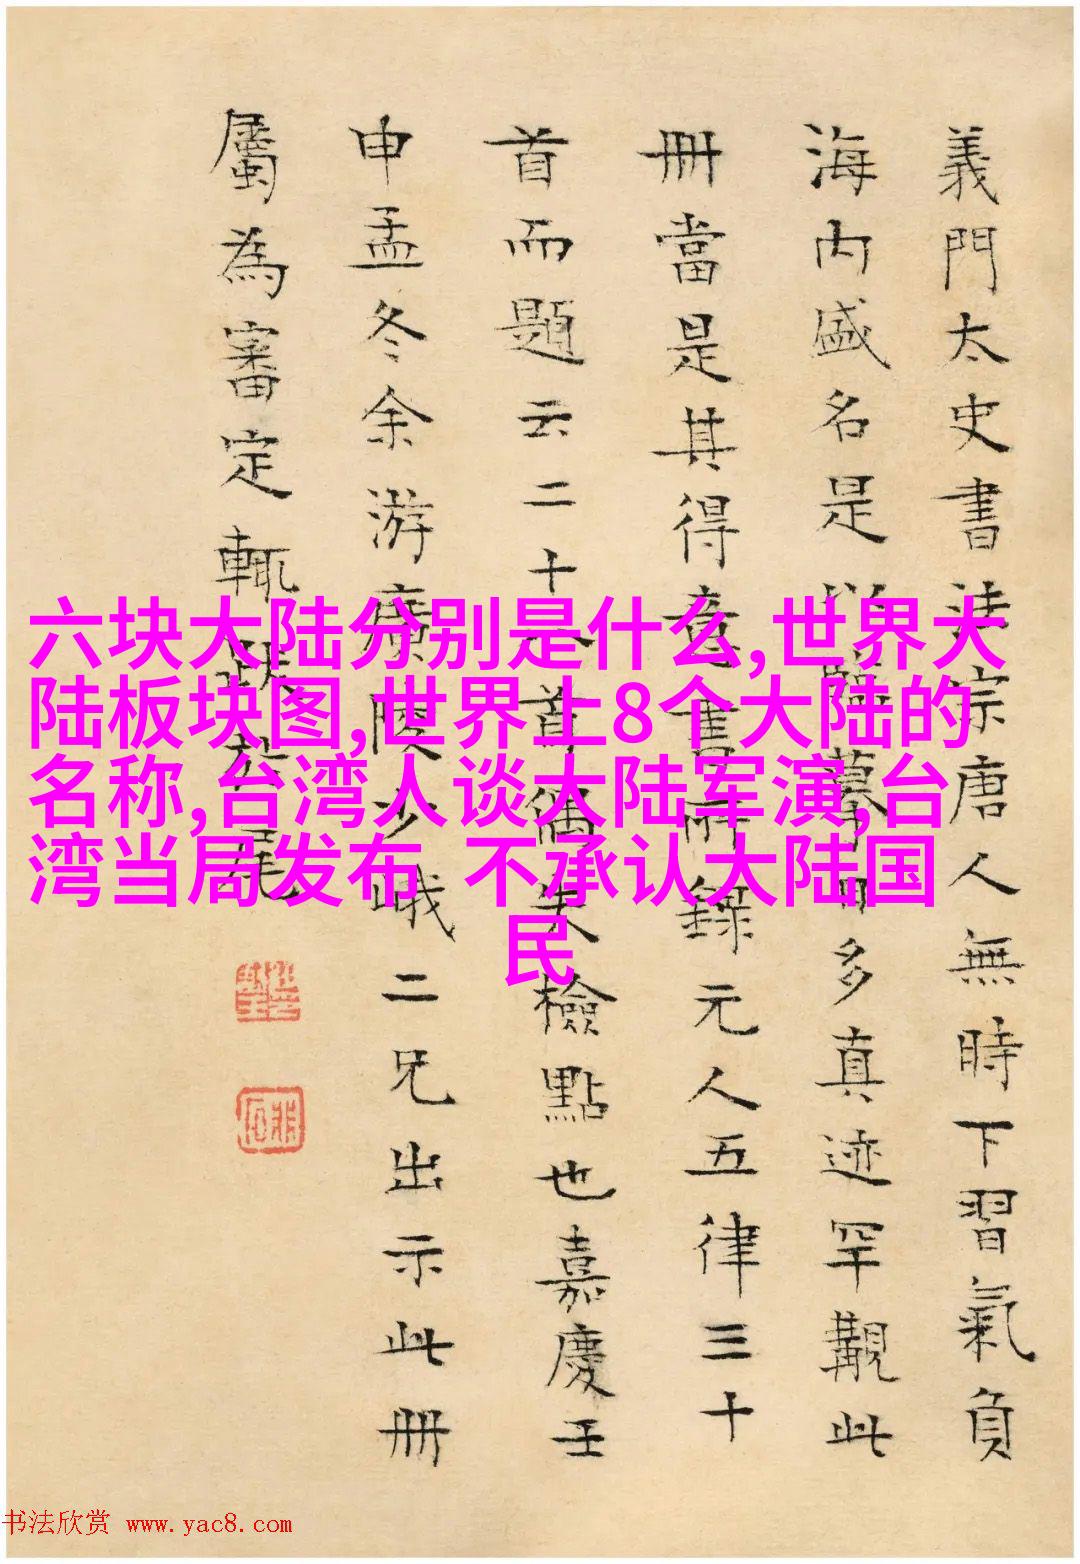 義門太史書法宗唐人無時下習氣負
海内盛名是以臨摹日多真迹罕覯此
冊當是其得意書所錄元人五律三十
首而題云二十首偶失檢點也嘉慶壬
申孟冬余游廣陵少峨二兄出示此冊
屬為審定輒跋於尾
六块大陆分别是什么,世界大
陆板块图,世界上8个大陆的
名称,台湾人谈大陆军演,台
湾当局发布 不承认大陆国
民
书法欣赏 www.yac8.com